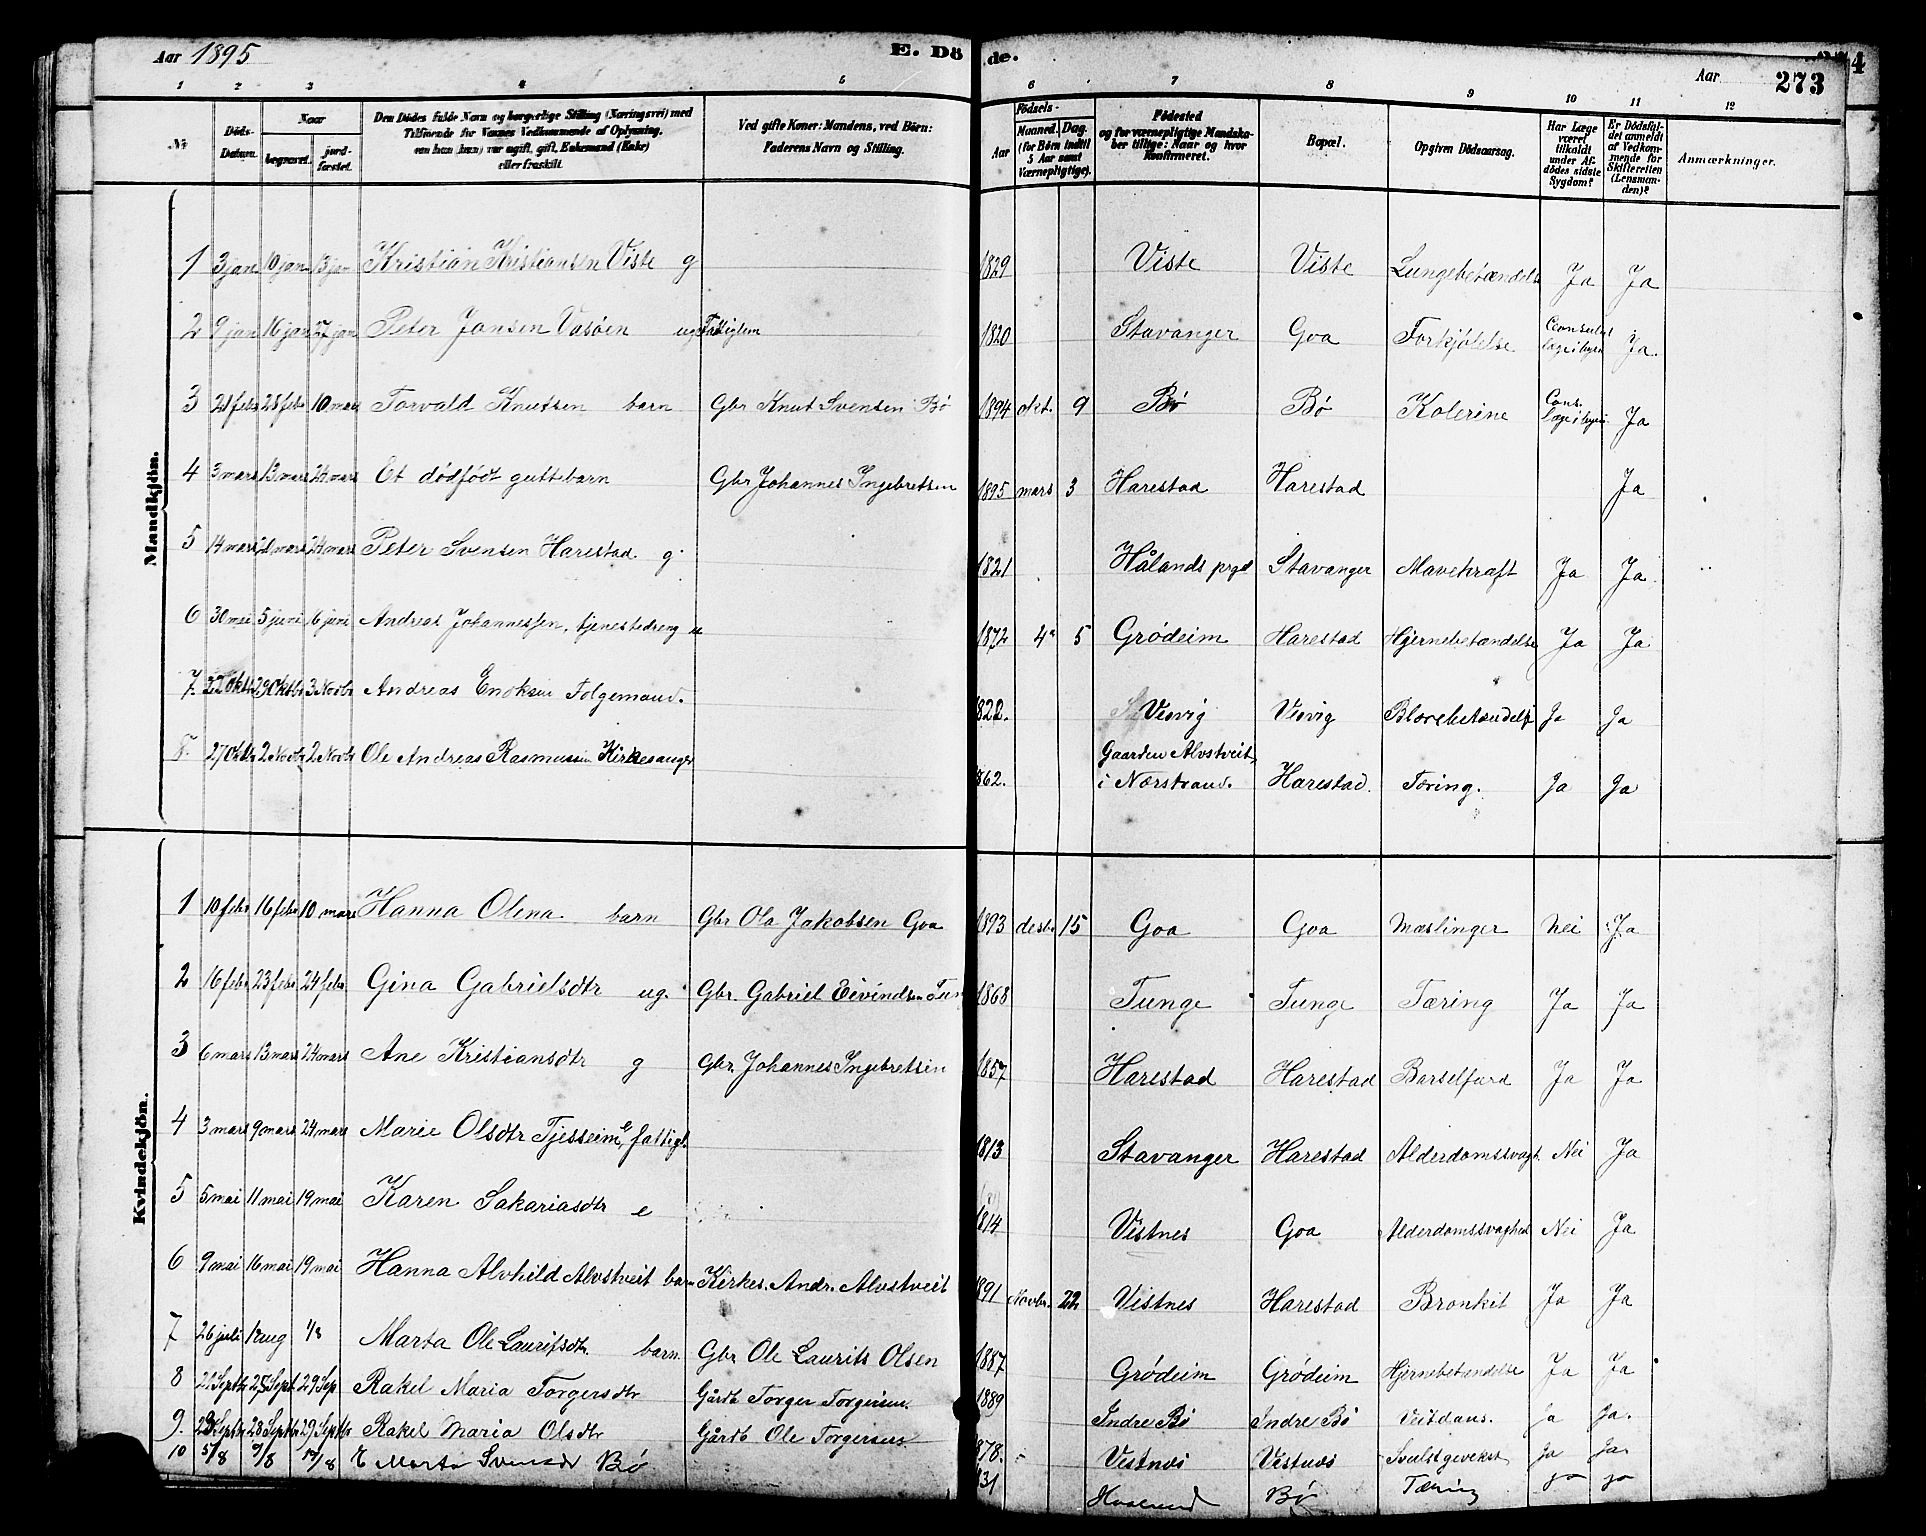 Aar 1895
E. Dö
de.
Aar
273
4
1 2 3 4 5 6 7 8 9 10 11 12
No
Döds-Datum.
Naar
begravet.
jord-fæstet.
Den Dödes fulde Navn og borgerlige Stilling (Næringsvei) med Tilföiende for Voxnes Vedkommende af Oplysning, om han (hun) var ugift, gift, Enkemand (Enke) eller fraskilt.
Ved gifte Koner: Mandens, ved Börn: Faderens Navn og Stilling.
Födsels-
Aar
Maaned. Dag.
(for Børn indtil 5 Aar samt Værnepligtige).
Födested og for værnepligtige Mandskaber tillige: Naar og hvor Konfirmeret.
Bopæl.
Opgiven Dödsaarsag.
Har Læge været tilkaldt under Afdödes sidste Sygdom?
Er Dödsfaldet anmeldt af Vedkommende for Skifteretten (Lensmanden)?
Anmærkninger.
Mandkjön.
1 3 jan 10 jan 13 jan Kristian Kristiansen Viste g 1829 Viste Viste Lungebetændelse Ja Ja
2 9 jan 16 jan 27 jan Peter Jansen Vasøen ug Fattiglem 1820 Stavanger Goa Forkjølelse Ja
3 21 feb 28 feb 10 mars Torvald Knutsen barn Gbr Knut Svensen Bø 1894 okt. 9 Bø Bø Kolerine Cons. Ja
4 3 mars 13 mars 24 mars Et dødfødt guttebarn Gbr Johannes Ingebretsen 1895 mars 3 Harestad Harestad Ja
5 14 mars 21 mars 24 mars Peter Svensen Harestad g 1821 Hålands prgd Stavanger Mavekræft Ja Ja
6 30 mai 5 juni 6 juni Andreas Johannessen, tjenestedreng u 1872 4 5 Grødeim Harestad Hjernebetændelse Ja Ja
7. 22 Oktbr 29 Oktbr 3 Novbr Andreas Enoksen Folgemand. 1822. Viervig Viervig Blærebetændelse Ja Ja
8. 27 Oktbr 2 Novbr 2 Novbr Ole Andreas Rasmussen Kirkesanger 1862. Gaarden Alvstveit i Nærstrand. Harestad. Tæring. Ja Ja
Kvindekjön.
1 10 feb 16 feb 10 mars Hanna Olena barn Gbr Ola Jakobsen Goa 1893 desbr 15 Goa Goa Mæslinger Nei Ja
2 16 feb 23 feb 24 feb Gina Gabrielsdtr ug. Gbr. Gabriel Eivindsen Tunge 1868 Tunge Tunge Tæring Ja Ja
3 6 mars 13 mars 24 mars Ane Kristiansdtr g Gbr Johannes Ingebretsen 1857 Harestad Harestad Barselfærd Ja Ja
4 3 mars 9 mars 24 mars Marie Olsdtr Tjesseim e, fattigl. 1813 Stavanger Harestad Alderdomssvagh. Nei Ja
5 5 mai 11 mai 19 mai Karen Sakariasdtr e 1814 Vistnes Goa Alderdomssvaghed Nei Ja
6 9 mai 16 mai 19 mai Hanna Alvhild Alvstveit barn Kirkes. Andr. Alvstveit 1891 Novbr. 22 Vistnes Harestad Bronkit Ja Ja
7 26 juli 1 aug 1/8 Marta Ole Lauritsdtr. barn Gbr Ole Laurits Olsen 1887 Grødeim Grødeim Hjernebetændelse Ja Ja
8 21 Septbr 25 Sept 29 Sep Rakel Maria Torgersdtr Gårdb Torger Torgersen 1889 Indre Bø Indre Bø Veitdans. Ja Ja.
9. 23 Septbr 28 Septbr 29 Septbr Rakel Maria Olsdtr Gårdb Ole Torgersen 1878. Vistnes Vistnes Svulstgevekst Ja Ja
10 5/8 9/8 10/8 E Marta Svensdr Bø 1831 Bø Tæring Ja Ja